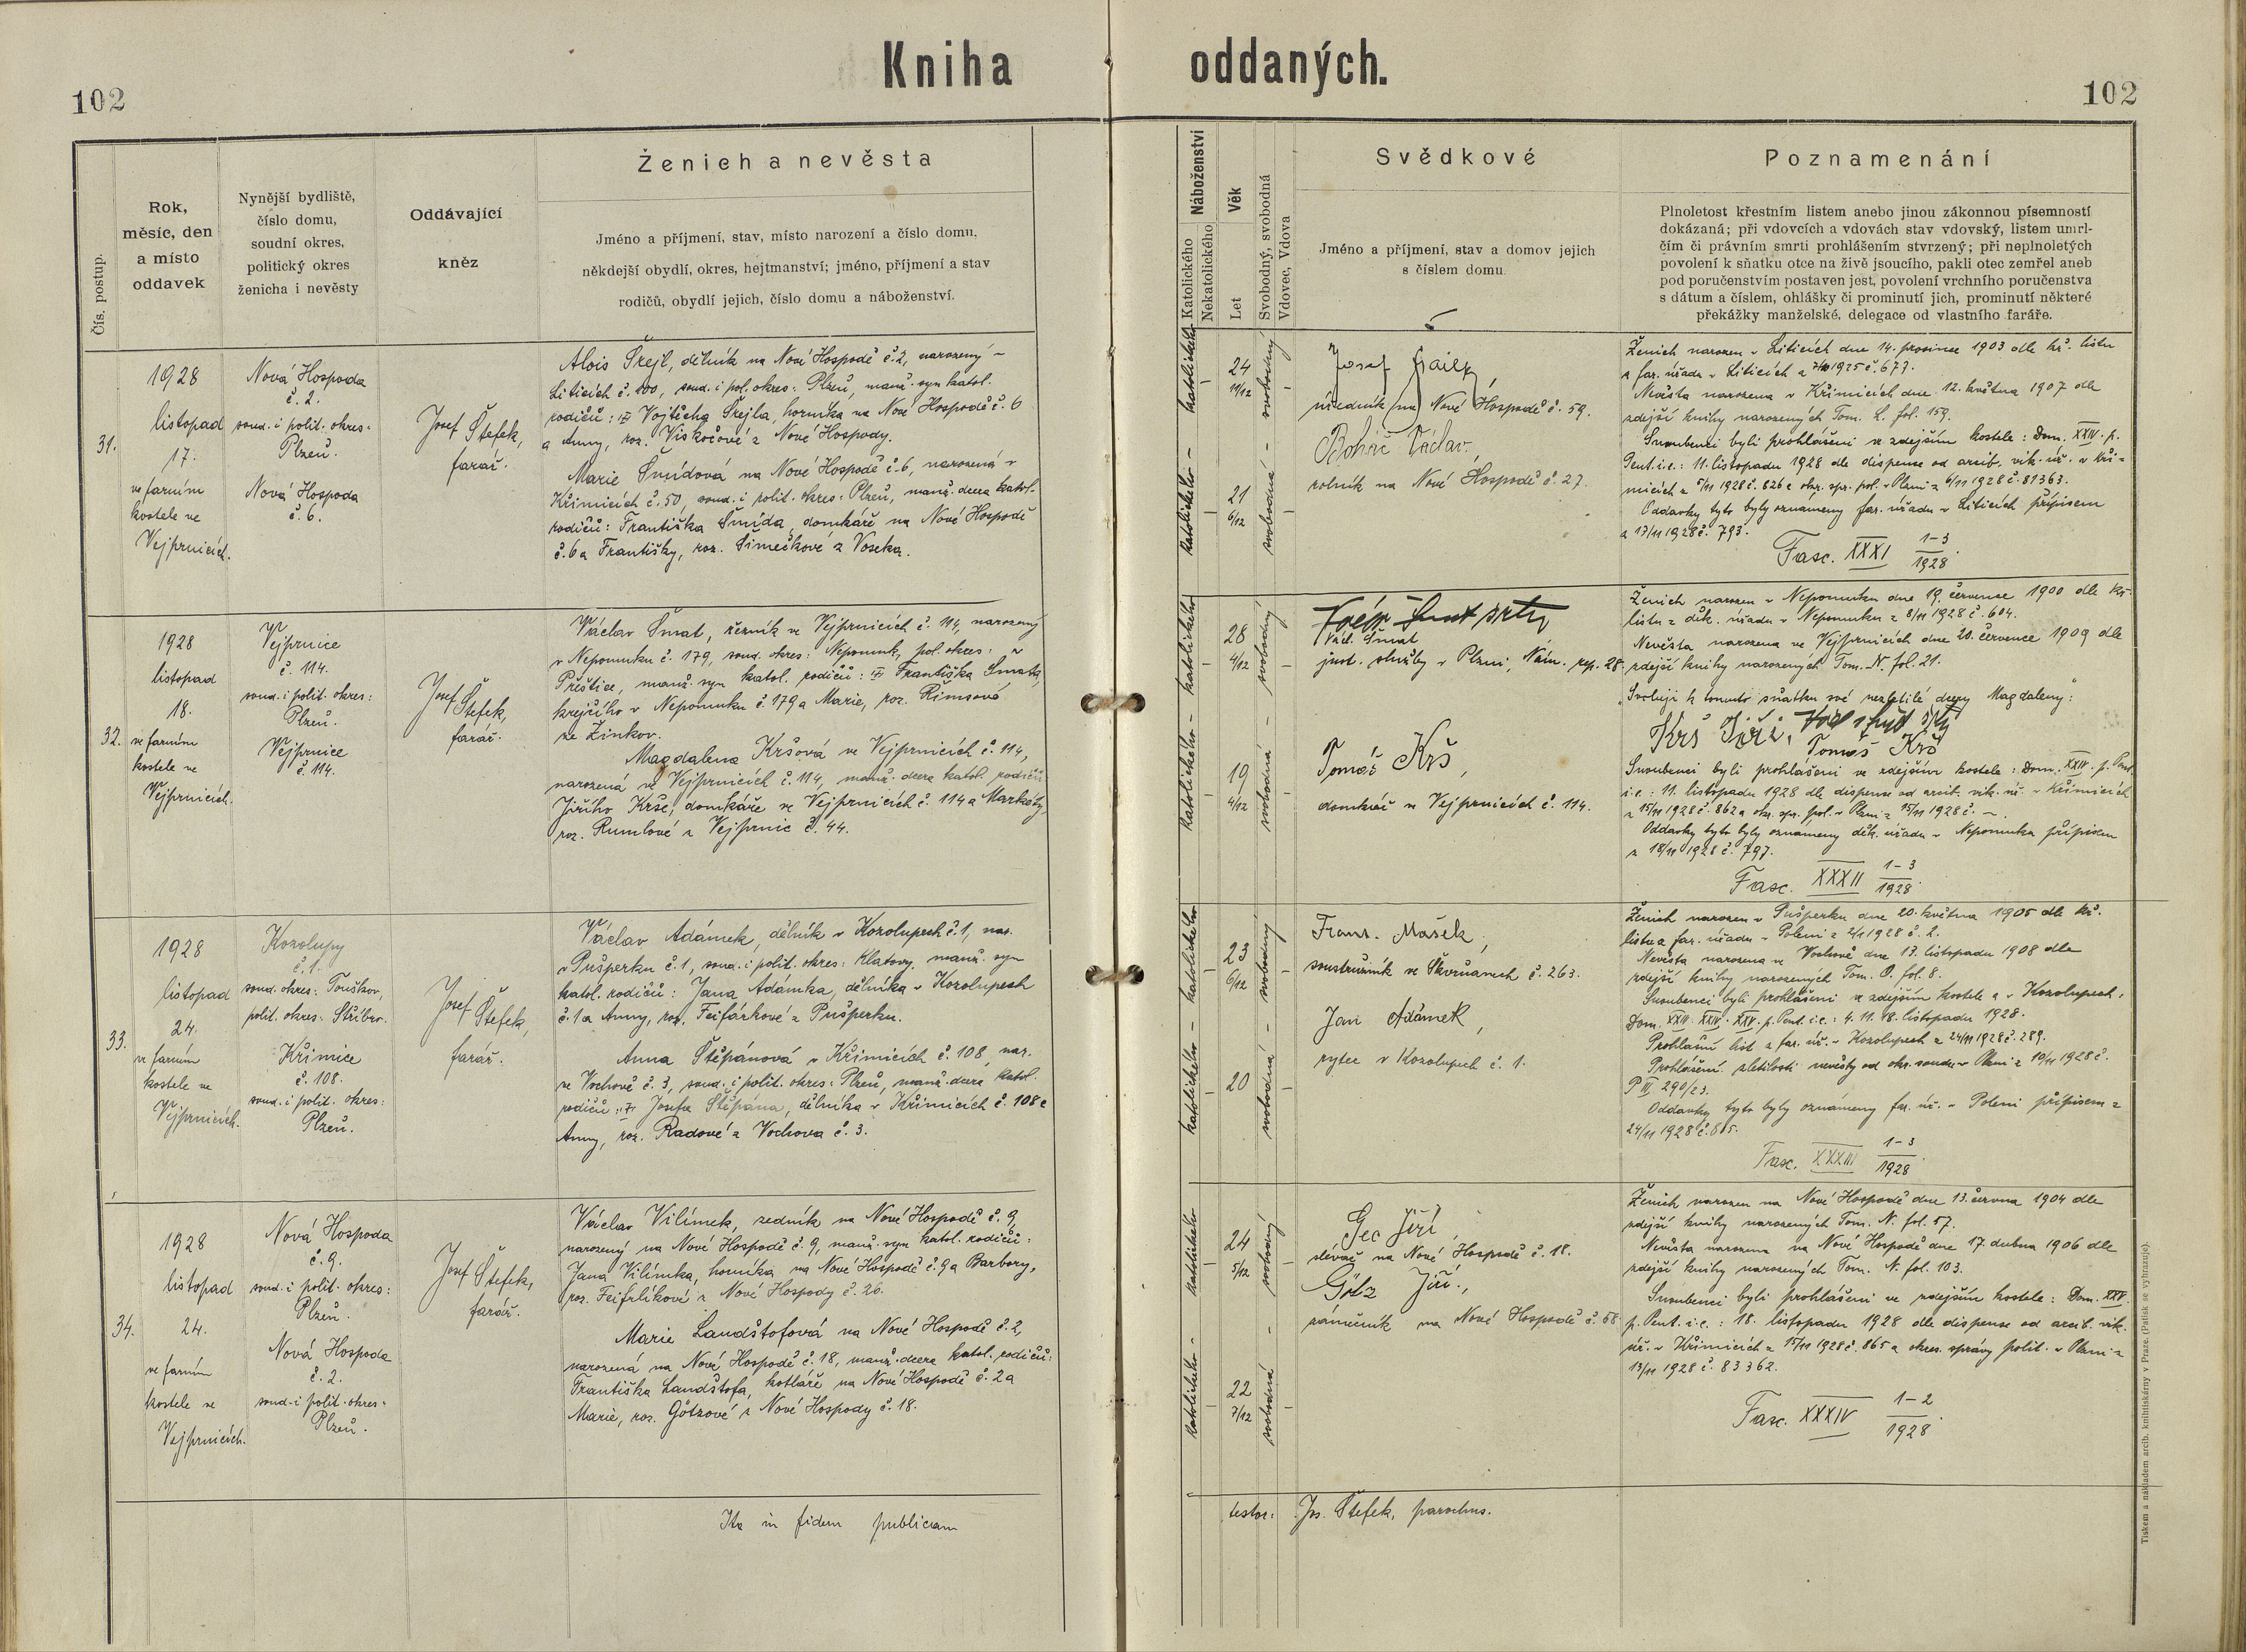 Kniha oddaných.
102
102
Čís. postup.
Rok,
měsíc, den
a místo
oddavek
Nynější bydliště,
číslo domu,
soudní okres,
politický okres
ženicha i nevěsty
Oddávající
kněz
Ženich a nevěsta
Jméno a příjmení, stav, místo narození a číslo domu,
někdejší obydlí, okres, hejtmanství; jméno, příjmení a stav
rodičů, obydlí jejich, číslo domu a náboženství.
Náboženství
Katolického
Nekatolického
Věk
Let
Svobodný, svobodná
Vdovec, Vdova
Svědkové
Jméno a příjmení, stav a domov jejich
s číslem domu
Poznamenání
Plnoletost křestním listem anebo jinou zákonnou písemností
dokázaná; při vdovcích a vdovách stav vdovský, listem úmrl-
čím či právním smrti prohlášením stvrzený; při neplnoletých
povolení k sňatku otce na živě jsoucího, pakli otec zemřel aneb
pod poručenstvím postaven jest, povolení vrchního poručenstva
s dátum a číslem, ohlášky či prominutí jich, prominutí některé
překážky manželské, delegace od vlastního faráře.
31.
1928
listopad
17.
ve farním
kostele ve
Vejprnicích.
Nová Hospoda
č. 2.
soud. i polit. okres:
Plzeň.
Nová Hospoda
č. 6.
Josef Štefek,
farář.
Alois Šrejl, dělník na Nové Hospodě č. 2, narozený v
Liticích č. 100, soud. i pol. okres: Plzeň, manž. syn katol.
rodičů: Vojtěcha Šrejla, horníka na Nové Hospodě č. 6
a Anny, roz. Viskočové z Nové Hospody.
Marie Šmídová na Nové Hospodě č. 6, narozená v
Křimicích č. 50, soud. i polit. okres: Plzeň, manž. dcera katol.
rodičů: Františka Šmída, domkáře na Nové Hospodě
č. 6 a Františky, roz. Šimečkové z Voseka.
katolického – katolického –
24
11/12
21
6/12
svobodný – svobodná –
Josef
úředník na Nové Hospodě č. 59.
Boháč Václav,
rolník na Nové Hospodě č. 27.
Ženich narozen v Liticích dne 14. prosince 1903 dle kř. listu
z far. úřadu v Liticích z 1925 č. 677.
Nevěsta narozena v Křimicích dne 12. května 1907 dle
zdejší knihy narozených Tom. L. fol. 159.
Snoubenci byli prohlášeni ve zdejším kostele: Dom. XXIV. p.
Pent. i.e.: 11. listopadu 1928 dle dispense od arcib. vik. úř. v Kři-
micích z 5/11 1928 č. 826 a okr. spr. pol. v Plzni z 6/11 1928 č. 81363.
Oddavky tyto byly oznámeny far. úřadu v Liticích přípisem
z 17/11 1928 č. 793.
Fasc. XXXI 1-3/1928.
32.
1928
listopad
18.
ve farním
kostele ve
Vejprnicích.
Vejprnice
č. 114.
soud. i polit. okres:
Plzeň.
Vejprnice
č. 114.
Josef Štefek,
farář.
Václav Šmat, řezník ve Vejprnicích č. 114, narozený
v Nepomuku č. 179, soud. okres: Nepomuk, pol. okres:
Přeštice, manž. syn katol. rodičů: Františka Šmata,
krejčího v Nepomuku č. 179 a Marie, roz. Římsové
ze Žinkov.
Magdalena Kršová ve Vejprnicích č. 114,
narozená ve Vejprnicích č. 114, manž. dcera katol. rodičů
Jiřího Krše, domkáře ve Vejprnicích č. 114 a Markéty,
roz. Rumlové z Vejprnic č. 44.
katolického – katolického –
28
4/12
19
4/12
svobodný – svobodná –
Václ. Šmat
just. služby v Plzni, Nám. rep. 28.
Tomáš Krš,
domkář ve Vejprnicích č. 114.
Ženich narozen v Nepomuku dne 19. července 1900 dle kř.
listu z děk. úřadu v Nepomuku z 8/11 1928 č. 604.
Nevěsta narozena ve Vejprnicích dne 20. července 1909 dle
zdejší knihy narozených Tom. N. fol. 21.
„Svoluji k tomuto sňatku své nezletilé dcery Magdaleny":
Krš Jiří.
Tomáš Krš
Snoubenci byli prohlášeni ve zdejším kostele: Dom. XXIV. p. Pent.
i.e.: 11. listopadu 1928 dle dispense od arcib. vik. úř. v Křimicích
z 15/11 1928 č. 862 a okr. spr. pol. v Plzni z 15/11 1928 č. –.
Oddavky tyto byly oznámeny děk. úřadu v Nepomuku přípisem
z 18/11 1928 č. 797.
Fasc. XXXII 1-3/1928.
33.
1928
listopad
24.
ve farním
kostele ve
Vejprnicích.
Kozolupy
č. 1.
soud. okres: Touškov,
polit. okres: Stříbro.
Křimice
č. 108.
soud. i polit. okres:
Plzeň.
Josef Štefek,
farář.
Václav Adámek, dělník v Kozolupech č. 1, nar.
v Pušperku č. 1, soud. i polit. okres: Klatovy, manž. syn
katol. rodičů: Jana Adámka, dělníka v Kozolupech
č. 1 a Anny, roz. Feifárkové z Pušperku.
Anna Štěpánová v Křimicích č. 108, nar.
ve Vochově č. 3, soud. i polit. okres: Plzeň, manž. dcera katol.
rodičů: Josefa Štěpána, dělníka v Křimicích č. 108 a
Anny, roz. Radové z Vochova č. 3.
katolického – katolického –
23
6/12
20
svobodný – svobodná –
Frant. Mašek,
soustružník ve Skvrňanech č. 263.
Jan Adámek,
rytec v Kozolupech č. 1.
Ženich narozen v Pušperku dne 20. května 1905 dle kř.
listu z far. úřadu v Poleni z 2/11 1928 č. 2.
Nevěsta narozena ve Vochově dne 13. listopadu 1908 dle
zdejší knihy narozených Tom. O. fol. 8.
Snoubenci byli prohlášeni ve zdejším kostele a v Kozolupech:
Dom. XXIII. XXIV. XXV. p. Pent. i.e.: 4. 11. 18. listopadu 1928.
Prohlašní list z far. úř. v Kozolupech z 24/11 1928 č. 289.
Prohlášení zletilosti nevěsty od okr. soudu v Plzni z 10/11 1928 č.
P III 290/23.
Oddavky tyto byly oznámeny far. úř. v Poleni přípisem z
24/11 1928 č. 805.
Fasc. XXXIII 1-3/1928.
34.
1928
listopad
24.
ve farním
kostele ve
Vejprnicích.
Nová Hospoda
č. 9.
soud. i polit. okres:
Plzeň.
Nová Hospoda
č. 2.
soud. i polit. okres:
Plzeň.
Josef Štefek,
farář.
Václav Vilímek, zedník na Nové Hospodě č. 9,
narozený na Nové Hospodě č. 9, manž. syn katol. rodičů:
Jana Vilímka, horníka na Nové Hospodě č. 9 a Barbory,
roz. Feifrlíkové z Nové Hospody č. 26.
Marie Landštofová na Nové Hospodě č. 2,
narozená na Nové Hospodě č. 18, manž. dcera katol. rodičů:
Františka Landštofa, kotláře na Nové Hospodě č. 2 a
Marie, roz. Götzové z Nové Hospody č. 18.
katolického – katolického –
24
5/12
22
7/12
svobodný – svobodná –
Gec Jiří,
slévač na Nové Hospodě č. 18.
Götz Jiří,
zámečník na Nové Hospodě č. 58.
Ženich narozen na Nové Hospodě dne 13. června 1904 dle
zdejší knihy narozených Tom. N. fol. 57.
Nevěsta narozena na Nové Hospodě dne 17. dubna 1906 dle
zdejší knihy narozených Tom. N. fol. 103.
Snoubenci byli prohlášeni ve zdejším kostele: Dom. XXV.
p. Pent. i.e.: 18. listopadu 1928 dle dispense od arcib. vik.
úř. v Křimicích z 15/11 1928 č. 865 a okres. správy polit. v Plzni z
13/11 1928 č. 83362.
Fasc. XXXIV 1-2/1928.
Ita in fidem publicam testor: Jos. Štefek, parochus.
Tiskem a nákladem arcib. knihtiskárny v Praze. (Patisk se vyhrazuje).